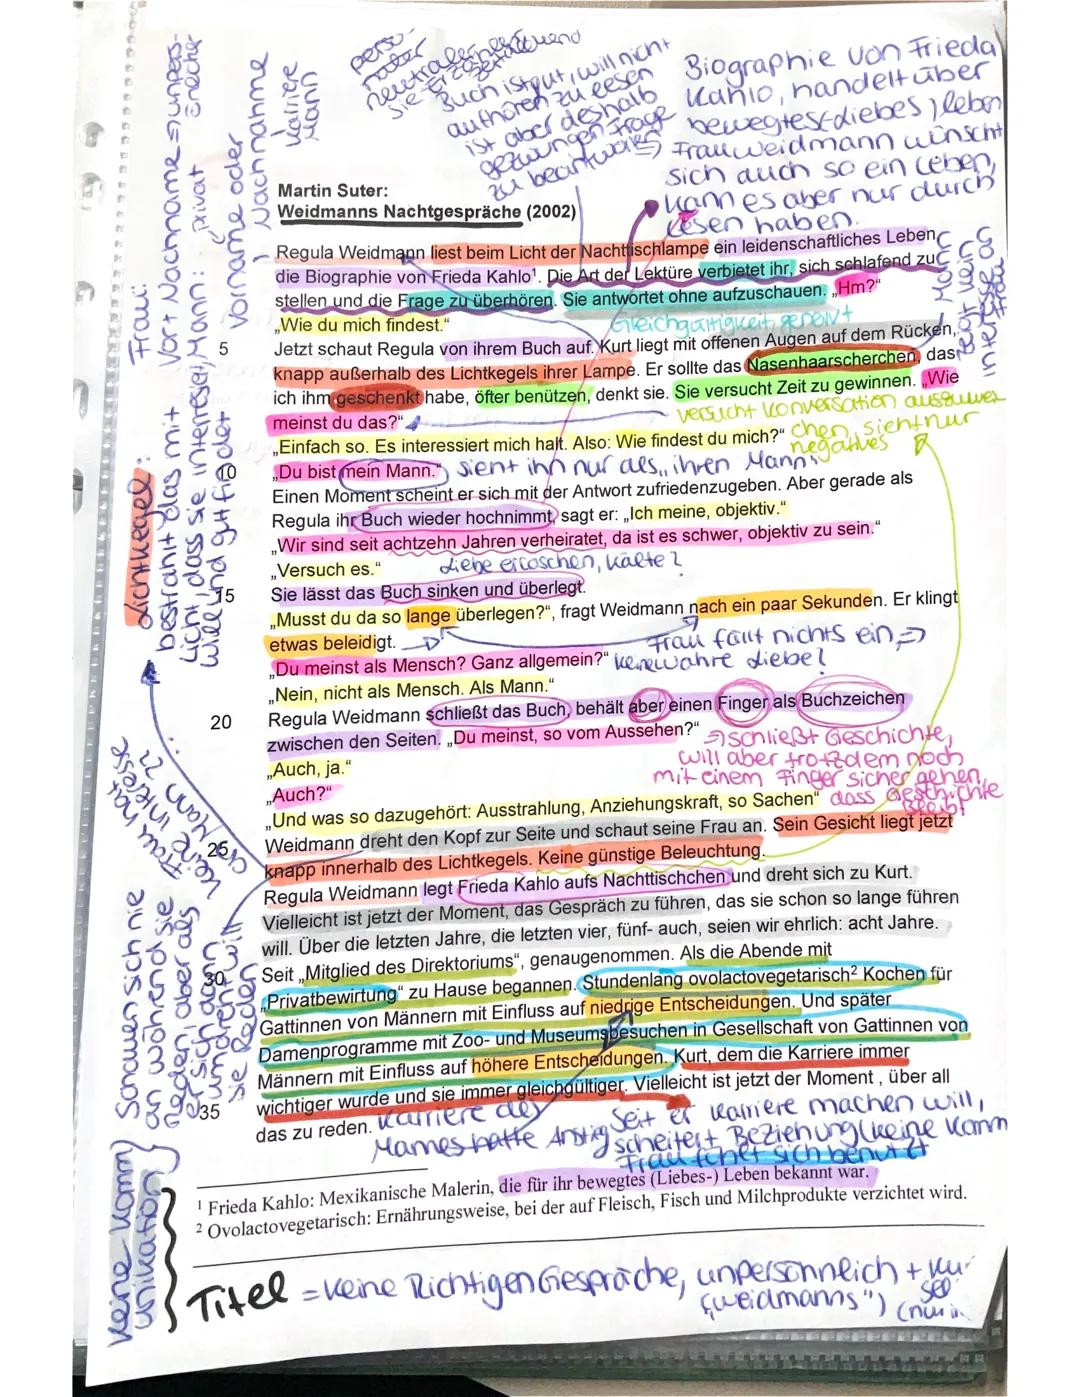 Martin Suter:
Weidmanns Nachtgespräche (2002)
Regula Weidmann liest beim Licht der Nachttischlampe ein leidenschaftliches Leben,
die Biographie von Frieda Kahlo¹. Die Art der Lektüre verbietet ihr, sich schlafend zu
stellen und die Frage zu überhören. Sie antwortet ohne aufzuschauen. „Hm?“
„Wie du mich findest.“
Gleichgültigkeit, genervt
5 Jetzt schaut Regula von ihrem Buch auf. Kurt liegt mit offenen Augen auf dem Rücken,
knapp außerhalb des Lichtkegels ihrer Lampe. Er sollte das Nasenhaarscherchen, das
ich ihm geschenkt habe, öfter benützen, denkt sie. Sie versucht Zeit zu gewinnen. „Wie
meinst du das?“
versucht Konversation
sieht nur
negatives
„Einfach so. Es interessiert mich halt. Also: Wie findest du mich?“
10 „Du bist mein Mann.“
sieht ihn nur als „ihren Mann“
Einen Moment scheint er sich mit der Antwort zufriedenzugeben. Aber gerade als
Regula ihr Buch wieder hochnimmt, sagt er: „Ich meine, objektiv.“
„Wir sind seit achtzehn Jahren verheiratet, da ist es schwer, objektiv zu sein.“
„Versuch es.“
Liebe erloschen, Kälte?
15 Sie lässt das Buch sinken und überlegt.
„Musst du da so lange überlegen?“, fragt Weidmann nach ein paar Sekunden. Er klingt
etwas beleidigt.
Frau fällt nichts ein =>
keine wahre Liebe?
„Du meinst als Mensch? Ganz allgemein?“
„Nein, nicht als Mensch. Als Mann.“
20 Regula Weidmann schließt das Buch, behält aber einen Finger als Buchzeichen
zwischen den Seiten. „Du meinst, so vom Aussehen?“
=> schließt Geschichte,
will aber trotzdem noch
mit einem Finger sicher gehen,
dass Geschichte
bleibt
„Auch, ja.“
„Auch?“
„Und was so dazugehört: Ausstrahlung, Anziehungskraft, so Sachen“
25 Weidmann dreht den Kopf zur Seite und schaut seine Frau an. Sein Gesicht liegt jetzt
knapp innerhalb des Lichtkegels. Keine günstige Beleuchtung.
Regula Weidmann legt Frieda Kahlo aufs Nachttischchen und dreht sich zu Kurt.
Vielleicht ist jetzt der Moment, das Gespräch zu führen, das sie schon so lange führen
will. Über die letzten Jahre, die letzten vier, fünf- auch, seien wir ehrlich: acht Jahre.
30 Seit „Mitglied des Direktoriums“, genaugenommen. Als die Abende mit
„Privatbewirtung“ zu Hause begannen. Stundenlang ovolactovegetarisch² Kochen für
Gattinnen von Männern mit Einfluss auf niedrige Entscheidungen. Und später
Damenprogramme mit Zoo- und Museumsbesuchen in Gesellschaft von Gattinnen von
Männern mit Einfluss auf höhere Entscheidungen. Kurt, dem die Karriere immer
35 wichtiger wurde und sie immer gleichgültiger. Vielleicht ist jetzt der Moment, über all
das zu reden.
Karriere des
Mannes hatte Anstieg
Seit er Karriere machen will,
scheitert Beziehung (keine Komm
Frau fühlt sich benutzt
¹ Frieda Kahlo: Mexikanische Malerin, die für ihr bewegtes (Liebes-) Leben bekannt war.
² Ovolactovegetarisch: Ernährungsweise, bei der auf Fleisch, Fisch und Milchprodukte verzichtet wird.
Titel = keine Richtigen Gespräche, unpersönnlich +
(„weidmanns“)
Biographie von Frieda
Kahlo, handelt über
bewegtes (liebes) leben
Frau weidmann wünscht
sich auch so ein Leben,
kann es aber nur durch
lesen haben.
Buch ist gut, will nicht
aufhören zu lesen
ist aber deshalb
gezwungen Frage
zu beantworten
Karriere
Mann
Frau:
Vor + Nachname => unpers-
Mann: privat
Vorname oder
Nachnahme
Lichtkegel:
bestrahlt das mit
Licht, dass sie interessiert
will und gut findet
Frau hat
keine Interesse
an Mann
Schauen sich nie
an während sie
Reden, aber als
er sich dann
umdreht will
sie Reden
keine Komm
unikation